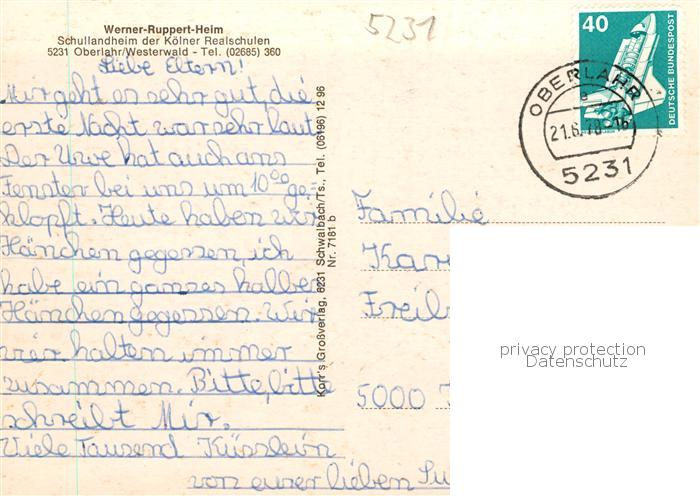 Werner-Ruppert-Heim
Schullandheim der Kölner Realschulen
5231 Oberlahr/Westerwald - Tel. (02685) 360
5231
Liebe Eltern!
Mir geht es sehr gut, die
erste Nacht war sehr laut
Der Uwe hat auch ans
Fenster bei uns um 10⁰⁰ ge-
klopft. Heute haben wir
Hänchen gegessen, ich
habe ein ganzes halbes
Hänchen gegessen. Wir
vier halten immer
zusammen. Bitte, bitte
schreibt Mir.
Viele Tausend Küsslein
von eurer lieben Su
Korr's Großverlag, 6231 Schwalbach/Ts., Tel. (06196) 12 96
Nr. 7181 b
40
DEUTSCHE BUNDESPOST
OBERLAHR
a
21.6.78-16
5231
Familie
Kar
Freil
5000
privacy protection
Datenschutz